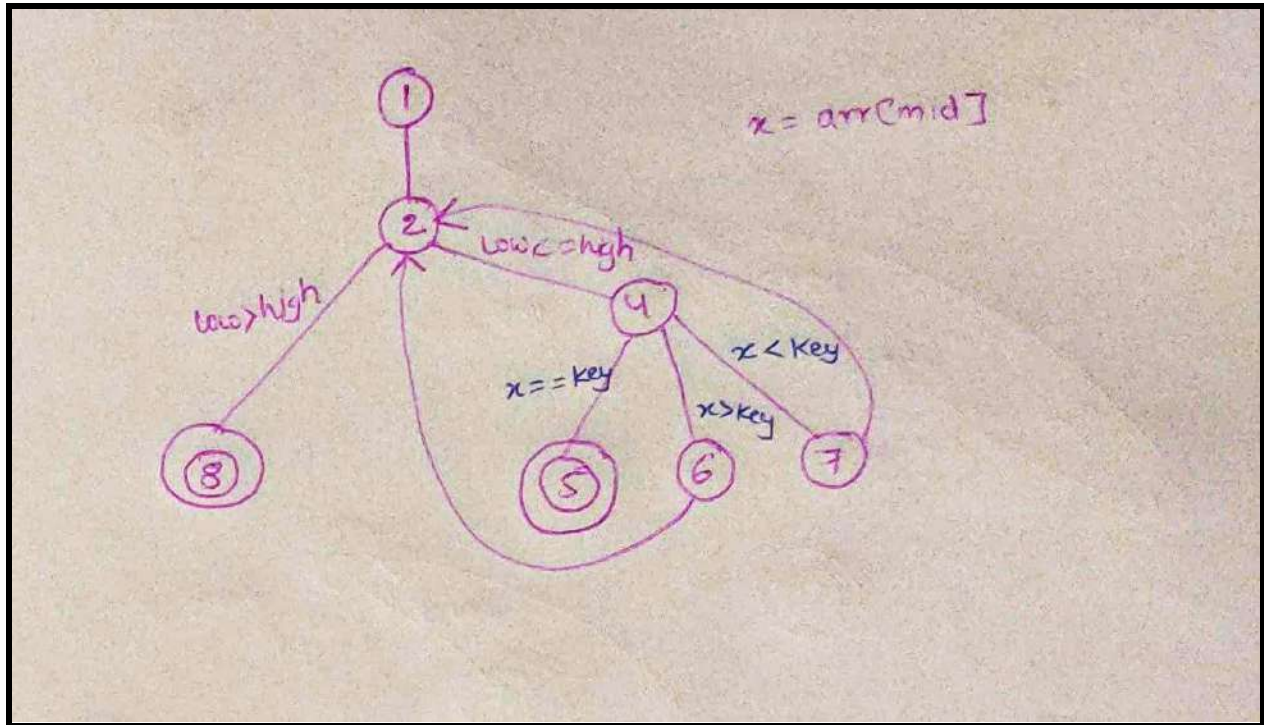 1
x = arr[mid]
2
low<=high
low>high
4
x==key
x>key
x<key
8
5
6
7